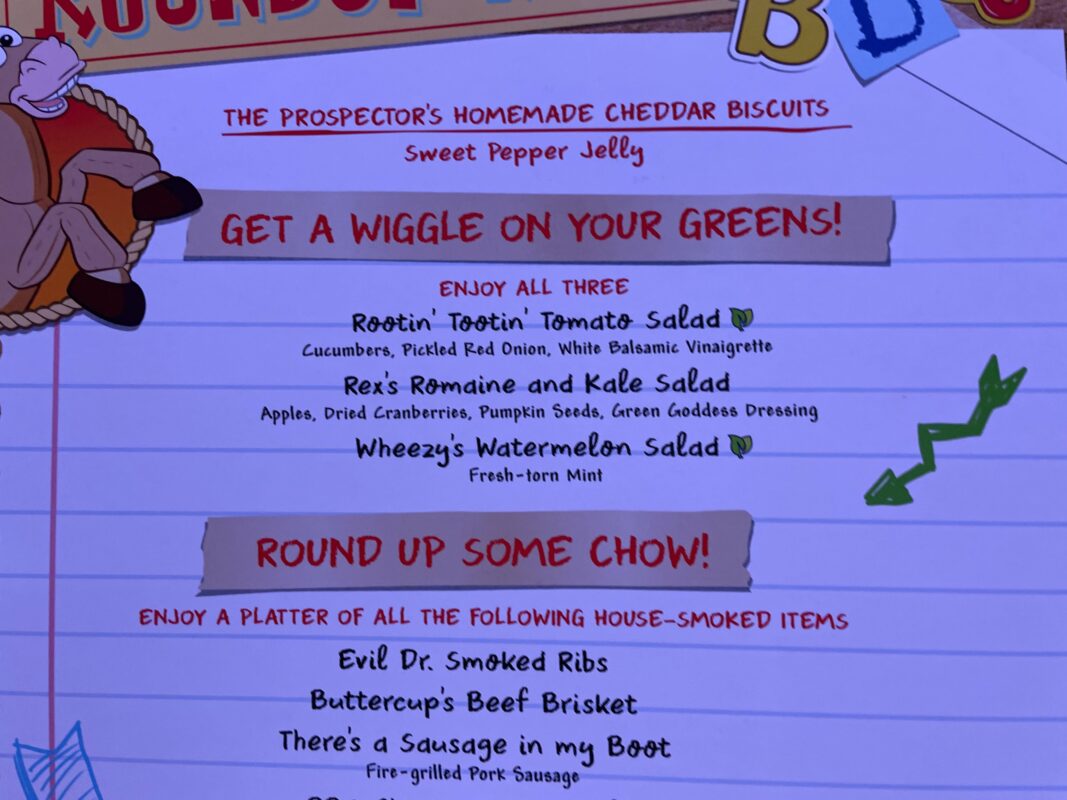 ROUNDUP
B
D
THE PROSPECTOR'S HOMEMADE CHEDDAR BISCUITS
Sweet Pepper Jelly
GET A WIGGLE ON YOUR GREENS!
ENJOY ALL THREE
Rootin' Tootin' Tomato Salad
Cucumbers, Pickled Red Onion, White Balsamic Vinaigrette
Rex's Romaine and Kale Salad
Apples, Dried Cranberries, Pumpkin Seeds, Green Goddess Dressing
Wheezy's Watermelon Salad
Fresh-torn Mint
ROUND UP SOME CHOW!
ENJOY A PLATTER OF ALL THE FOLLOWING HOUSE-SMOKED ITEMS
Evil Dr. Smoked Ribs
Buttercup's Beef Brisket
There's a Sausage in my Boot
Fire-grilled Pork Sausage